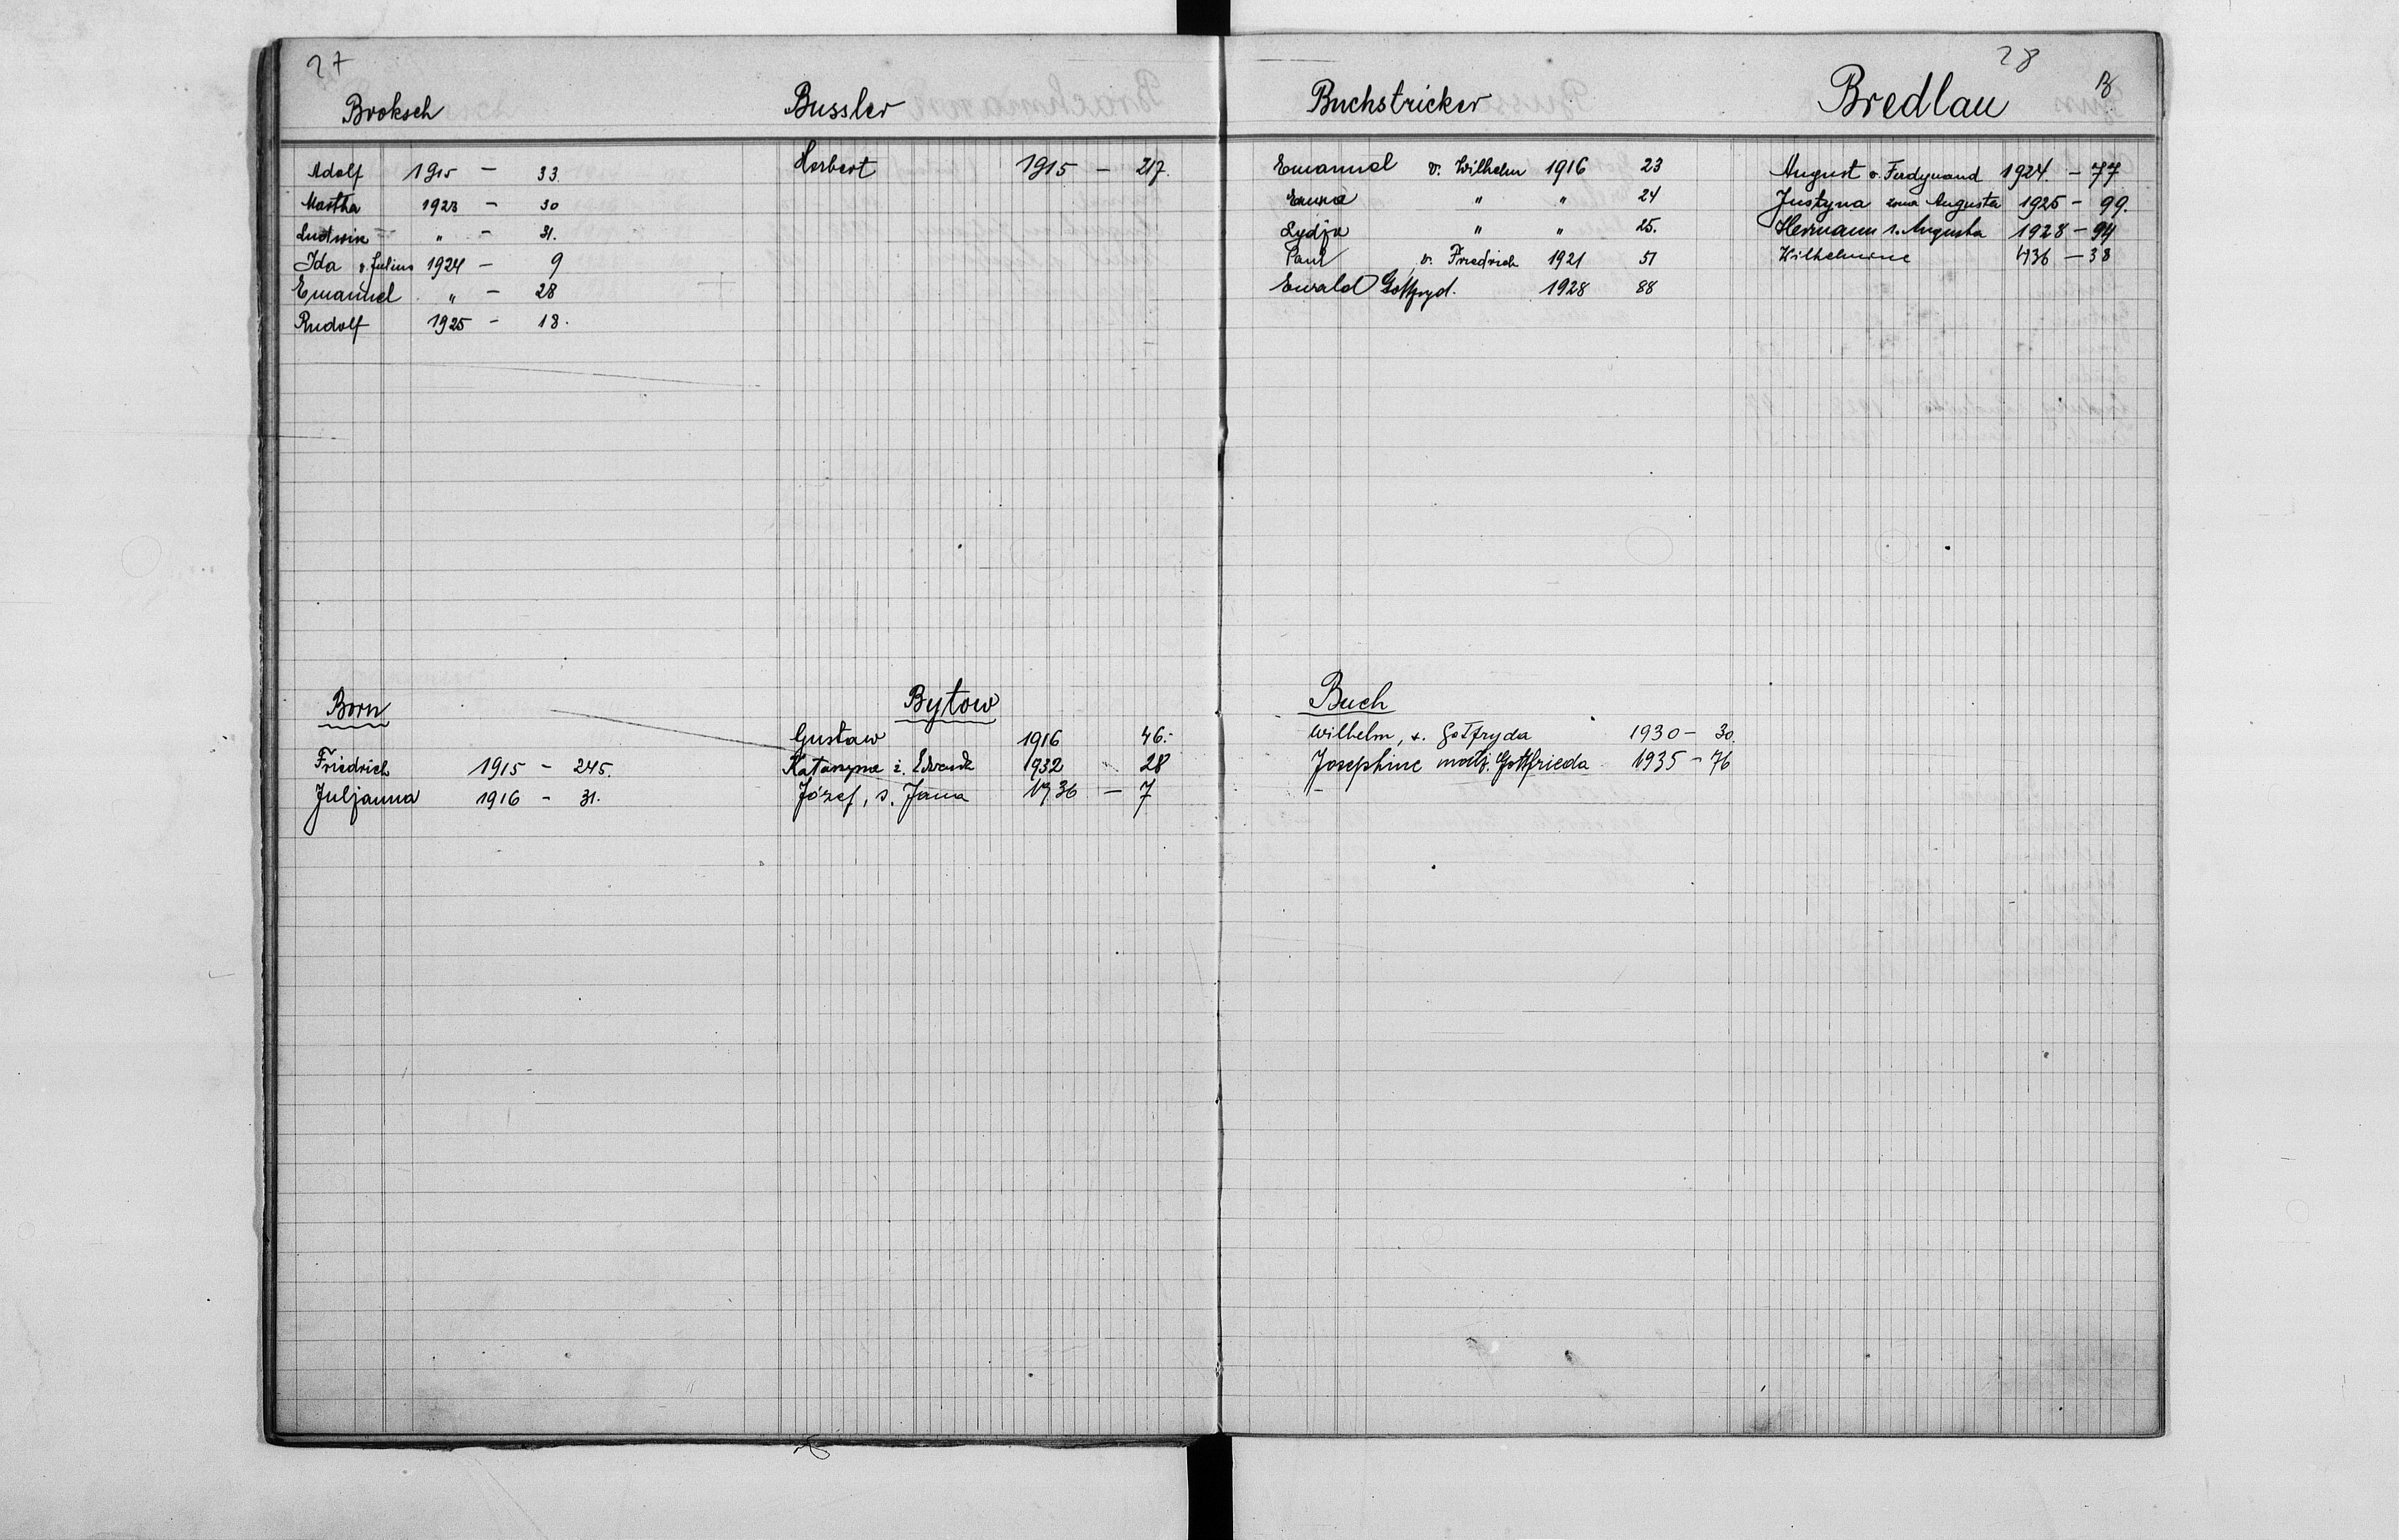 27
Broksch
Adolf 1915 - 33.
Martha 1923 - 30
Ludwik " - 31.
Ida v. Julius 1924 - 9
Emanuel " - 28
Rudolf 1925 - 18.
Bussler
Herbert 1915 - 217.
Born
Friedrich 1915 - 245.
Juljanna 1916 - 31.
Bytow
Gustaw 1916 46.-
Katarzyna ż. 1932 28
Józef, s. Jana 1936 - 7
28
B
Buchstricker
Emanuel v. Wilhelm 1916 23
Emma " " 24
Lydja " " 25.
Paul v. Friedrich 1921 51
Ewald Gottfryd. 1928 88
Bredlau
August v. Ferdynand 1924. - 77
Justyna żona Augusta 1925 - 99.
Hermann s. Augusta 1928 - 94
Wilhelmine 1936 - 38
Buch
Wilhelm, s. Gotfryda 1930 - 30.
Josephine małż. Gottfrieda 1935 - 76